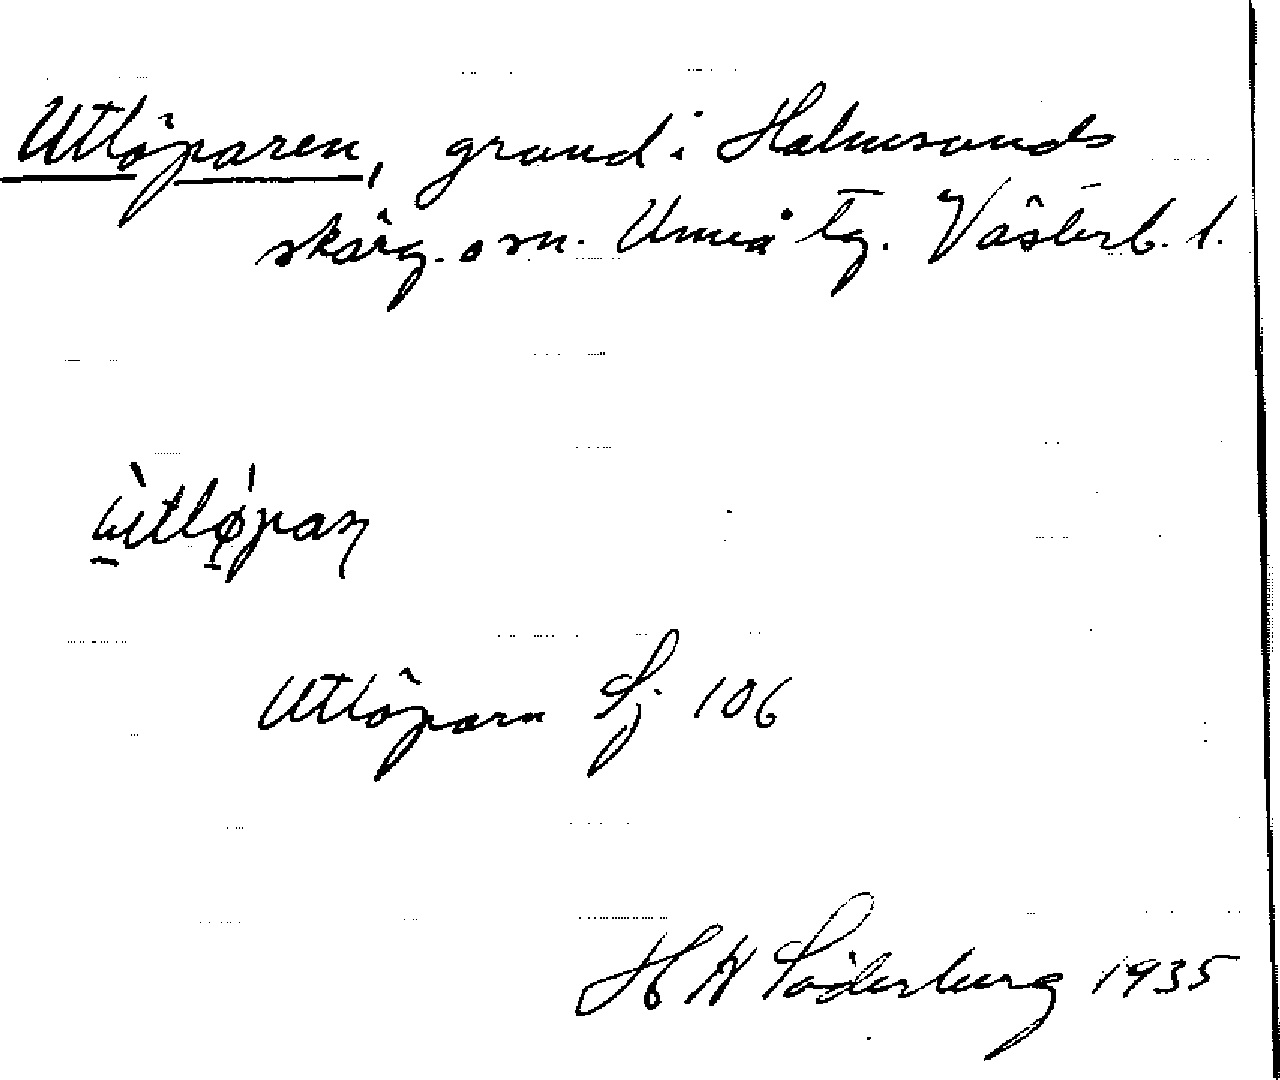 Utlöparen, grund i Holmsunds
skärg. o sn. Umeå tg. Västerb. l.
Utlöparn Sj 106
H W Söderberg 1935